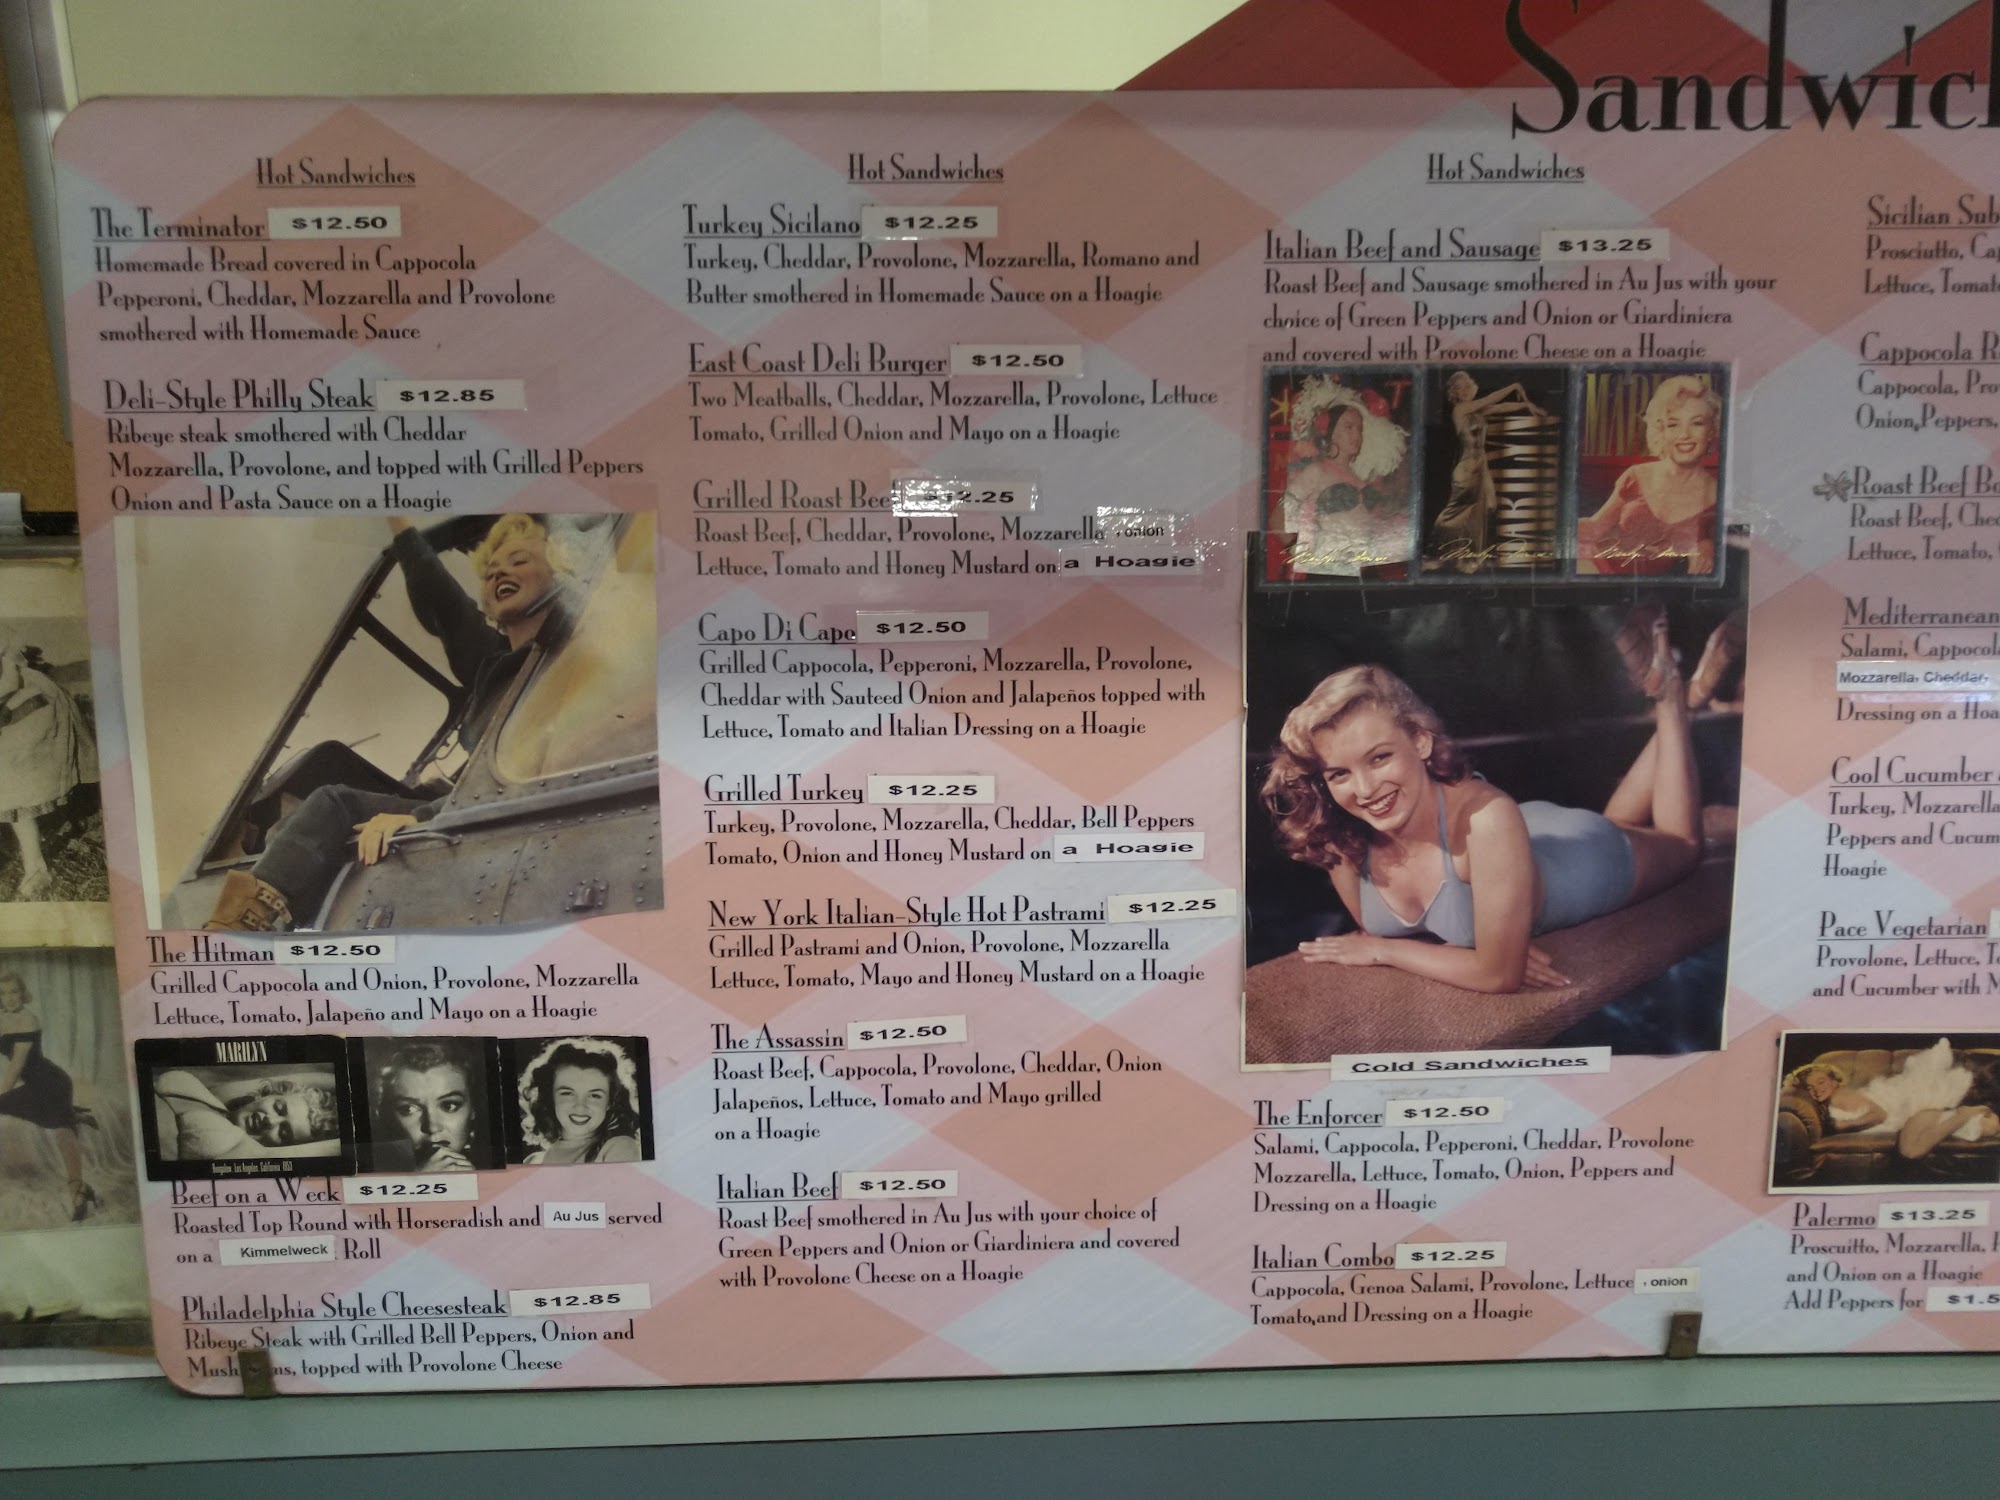 Hot Sandwiches
The Terminator $12.50
Homemade Bread covered in Cappocola
Pepperoni, Cheddar, Mozzarella and Provolone
smothered with Homemade Sauce
Deli-Style Philly Steak $12.85
Ribeye steak smothered with Cheddar
Mozzarella, Provolone, and topped with Grilled Peppers
Onion and Pasta Sauce on a Hoagie
The Hitman $12.50
Grilled Cappocola and Onion, Provolone, Mozzarella
Lettuce, Tomato, Jalapeño and Mayo on a Hoagie
MARILYN
Beef on a Weck $12.25
Roasted Top Round with Horseradish and Au Jus served
on a Kimmelweck Roll
Philadelphia Style Cheesesteak $12.85
Ribeye Steak with Grilled Bell Peppers, Onion and
topped with Provolone Cheese
Hot Sandwiches
Turkey Sicilano $12.25
Turkey, Cheddar, Provolone, Mozzarella, Romano and
Butter smothered in Homemade Sauce on a Hoagie
East Coast Deli Burger $12.50
Two Meatballs, Cheddar, Mozzarella, Provolone, Lettuce
Tomato, Grilled Onion and Mayo on a Hoagie
Grilled Roast Beef $12.25
Roast Beef, Cheddar, Provolone, Mozzarella , onion
Lettuce, Tomato and Honey Mustard on a Hoagie
Capo Di Capo $12.50
Grilled Cappocola, Pepperoni, Mozzarella, Provolone,
Cheddar with Sauteed Onion and Jalapeños topped with
Lettuce, Tomato and Italian Dressing on a Hoagie
Grilled Turkey $12.25
Turkey, Provolone, Mozzarella, Cheddar, Bell Peppers
Tomato, Onion and Honey Mustard on a Hoagie
New York Italian-Style Hot Pastrami $12.25
Grilled Pastrami and Onion, Provolone, Mozzarella
Lettuce, Tomato, Mayo and Honey Mustard on a Hoagie
The Assassin $12.50
Roast Beef, Cappocola, Provolone, Cheddar, Onion
Jalapeños, Lettuce, Tomato and Mayo grilled
on a Hoagie
Italian Beef $12.50
Roast Beef smothered in Au Jus with your choice of
Green Peppers and Onion or Giardiniera and covered
with Provolone Cheese on a Hoagie
Sandwich
Hot Sandwiches
Italian Beef and Sausage $13.25
Roast Beef and Sausage smothered in Au Jus with your
choice of Green Peppers and Onion or Giardiniera
and covered with Provolone Cheese on a Hoagie
MARILYN
Cold Sandwiches
The Enforcer $12.50
Salami, Cappocola, Pepperoni, Cheddar, Provolone
Mozzarella, Lettuce, Tomato, Onion, Peppers and
Dressing on a Hoagie
Italian Combo $12.25
Cappocola, Genoa Salami, Provolone, Lettuce , onion
Tomato,and Dressing on a Hoagie
Sicilian Sub
Prosciutto,
Lettuce,
Cappocola
Cappocola,
Onion,Peppers,
Roast Beef
Roast Beef,
Lettuce, Tomato,
Mediterranean
Salami,
Mozzarella, Cheddar,
Dressing on a
Cool Cucumber
Turkey, Mozzarella
Peppers and
Hoagie
Pace Vegetarian
Provolone, Lettuce,
and Cucumber with
Palermo $13.25
Proscuitto, Mozzarella,
and Onion on a Hoagie
Add Peppers for